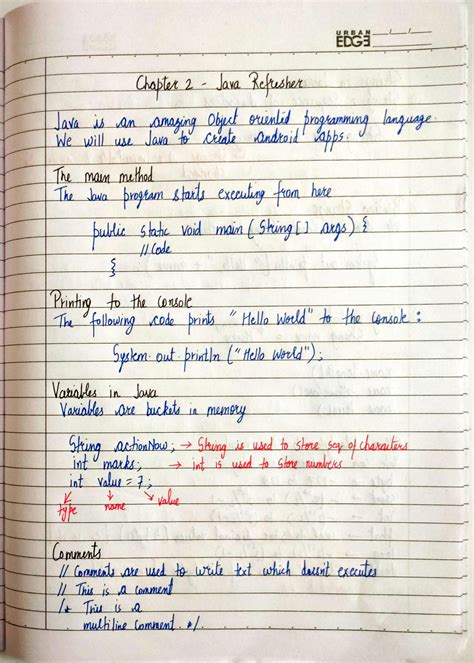 URBAN
EDGE
Chapter 2 - Java Refresher
Java is an amazing Object oriented programming language.
We will use Java to create android apps.
The main method
The Java program starts executing from here
public static void main (String[] args) {
// Code
}
Printing to the console
The following code prints "Hello World" to the console :
System.out.println ("Hello World");
Variables in Java
Variables are buckets in memory
String actionNow; → String is used to store seq of characters
int marks; → int is used to store numbers
int value = 7;
type name value
Comments
// Comments are used to write text which doesn't executes
// This is a comment
/* This is a
multiline comment. */